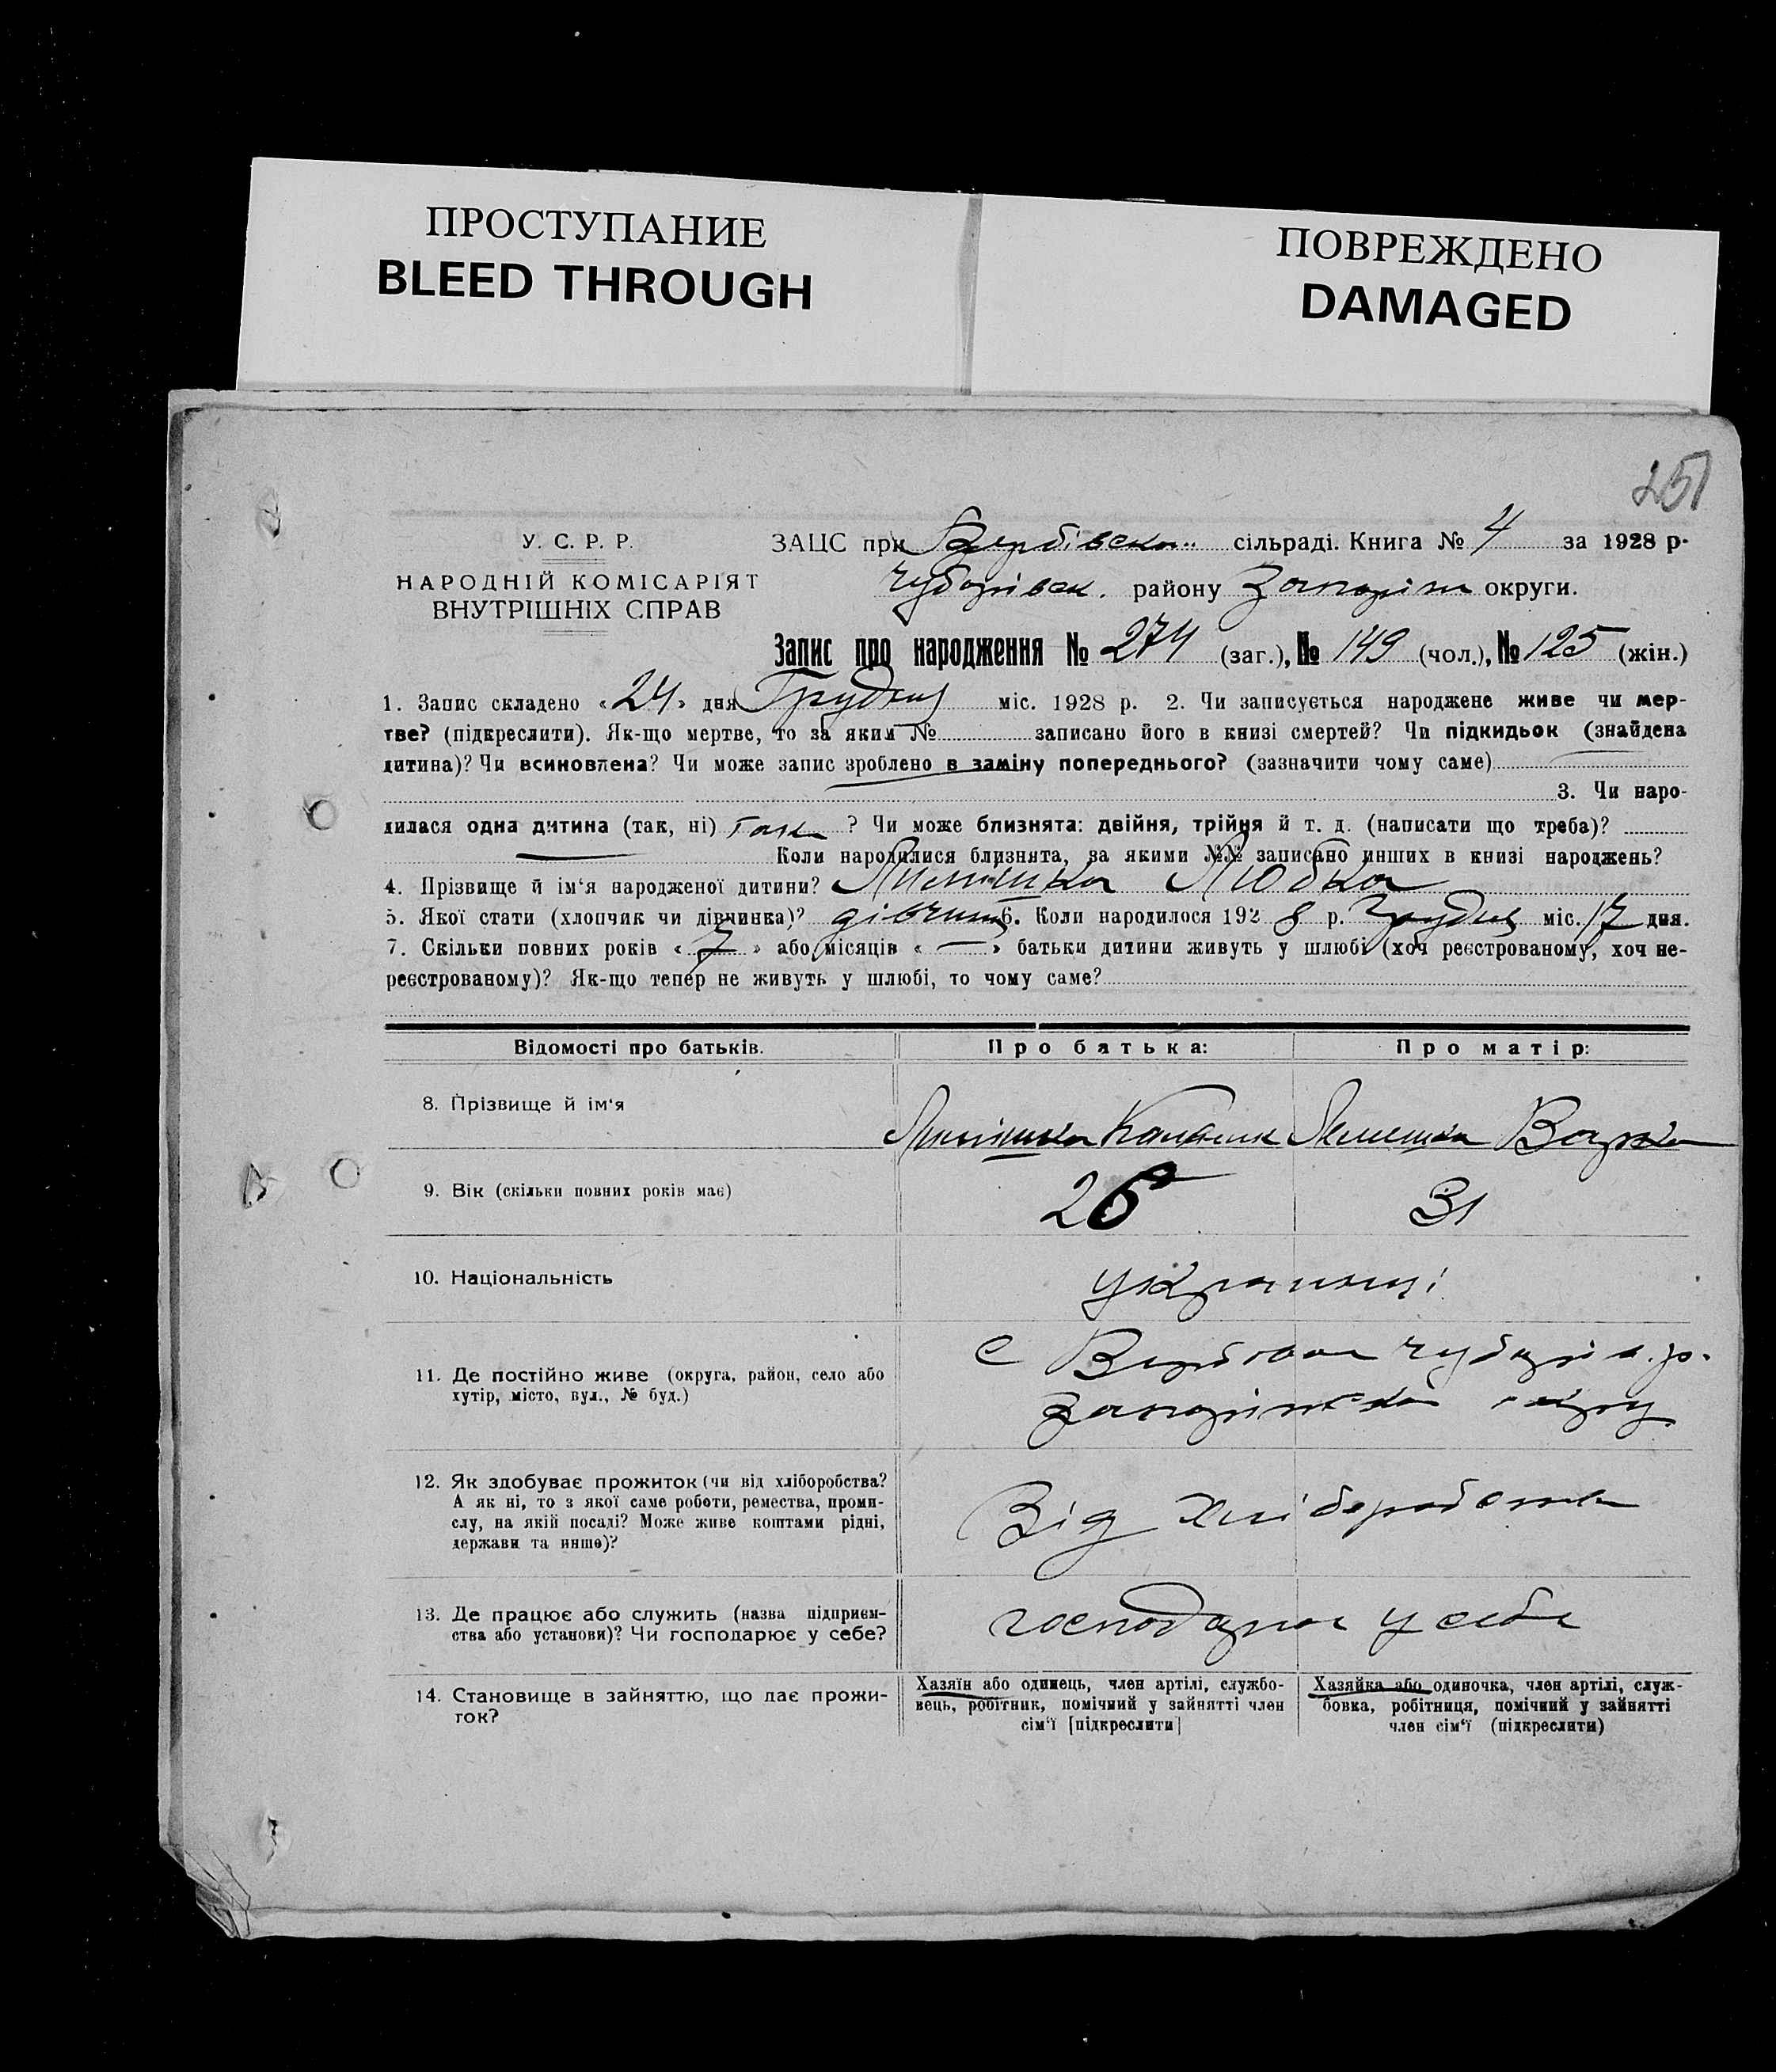 ПРОСТУПАНИЕ
BLEED THROUGH
ПОВРЕЖДЕНО
DAMAGED
251
У. С. Р. Р.
НАРОДНІЙ КОМІСАРІЯТ
ВНУТРІШНІХ СПРАВ
ЗАЦС при Вербівська сільраді. Книга № 4 за 1928 р.
Чубарівськ. району Запоріж округи.
Запис про народження № 274 (заг.), № 149 (чол.), № 125 (жін.)
1. Запис складено «24» дня Грудня міс. 1928 р. 2. Чи записується народжене живе чи мер-
тве? (підкреслити). Як-що мертве, то за яким № записано його в книзі смертей? Чи підкидьок (знайдена
дитина)? Чи всиновлена? Чи може запис зроблено в заміну попереднього? (зазначити чому саме)
3. Чи наро-
дилася одна дитина (так, ні) так ? Чи може близнята: двійня, трійня й т. д. (написати що треба)?
Коли народилися близнята, за якими №№ записано инших в книзі народжень?
4. Прізвище й ім‘я народженої дитини? Любка
5. Якої стати (хлопчик чи дівчинка)? дівчина 6. Коли народилося 1928 р. Грудня міс. 17 дня.
7. Скільки повних років «7» або місяців «—» батьки дитини живуть у шлюбі (хоч реєстрованому, хоч не-
реєстрованому)? Як-що тепер не живуть у шлюбі, то чому саме?
Відомості про батьків. Про батька: Про матір:
8. Прізвище й ім‘я
Варка
9. Вік (скільки повних років має) 26 31
10. Національність українці
11. Де постійно живе (округа, район, село або
хутір, місто, вул., № буд.)
с Вербова Чубарів. р.
Запоріжської округ.
12. Як здобуває прожиток (чи від хліборобства?
А як ні, то з якої саме роботи, ремества, проми-
слу, на якій посаді? Може живе коштами рідні,
держави та инше)?
Від хліборобства
13. Де працює або служить (назва підприєм-
ства або установи)? Чи господарює у себе?
господарює у себе
14. Становище в зайняттю, що дає прожи-
ток?
Хазяїн або одинець, член артілі, службо-
вець, робітник, помічний у зайнятті член
сім‘ї [підкреслити]
Хазяйка або одиночка, член артілі, служ-
бовка, робітниця, помічний у зайнятті
член сім‘ї (підкреслити)